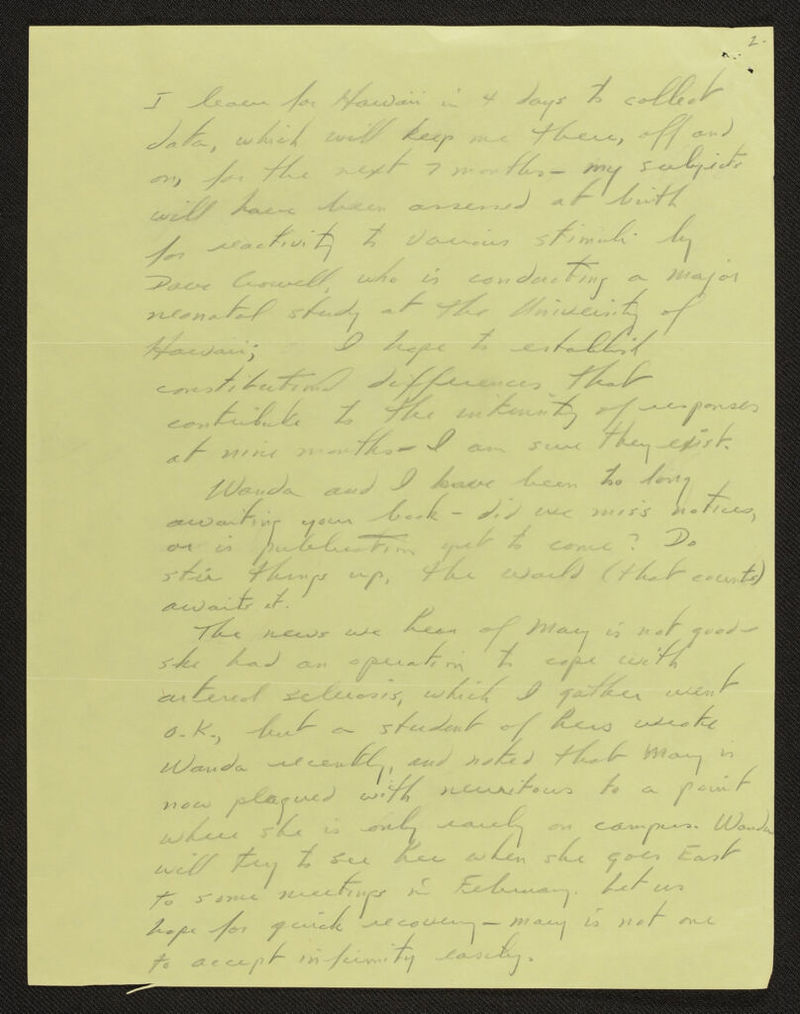 2.
I leave for Hawaii in 4 days to collect
data, which will keep me there, off and
on, for the next 7 months — my subjects
will have been assessed at birth
for reactivity to various stimuli by
Dave Crowell, who is conducting a major
neonatal study at the University of
Hawaii; I hope to establish
constitutional differences that
contribute to the intensity of responses
at nine months — I am sure they exist.
Wanda and I have been too long
awaiting your book — did we miss notices,
or is publication yet to come? Do
stir things up, the world (that counts)
awaits it.
The news we hear of Mary is not good —
she had an operation to cope with
arterol sclerosis, which I gather went
O.K., but a student of hers wrote
Wanda recently, and noted that Mary is
now plagued with neuritous to a point
where she is only rarely on campus. Wanda
will try to see her when she goes East
to some meetings in February. Let us
hope for quick recovery — Mary is not one
to accept infirmity easily.